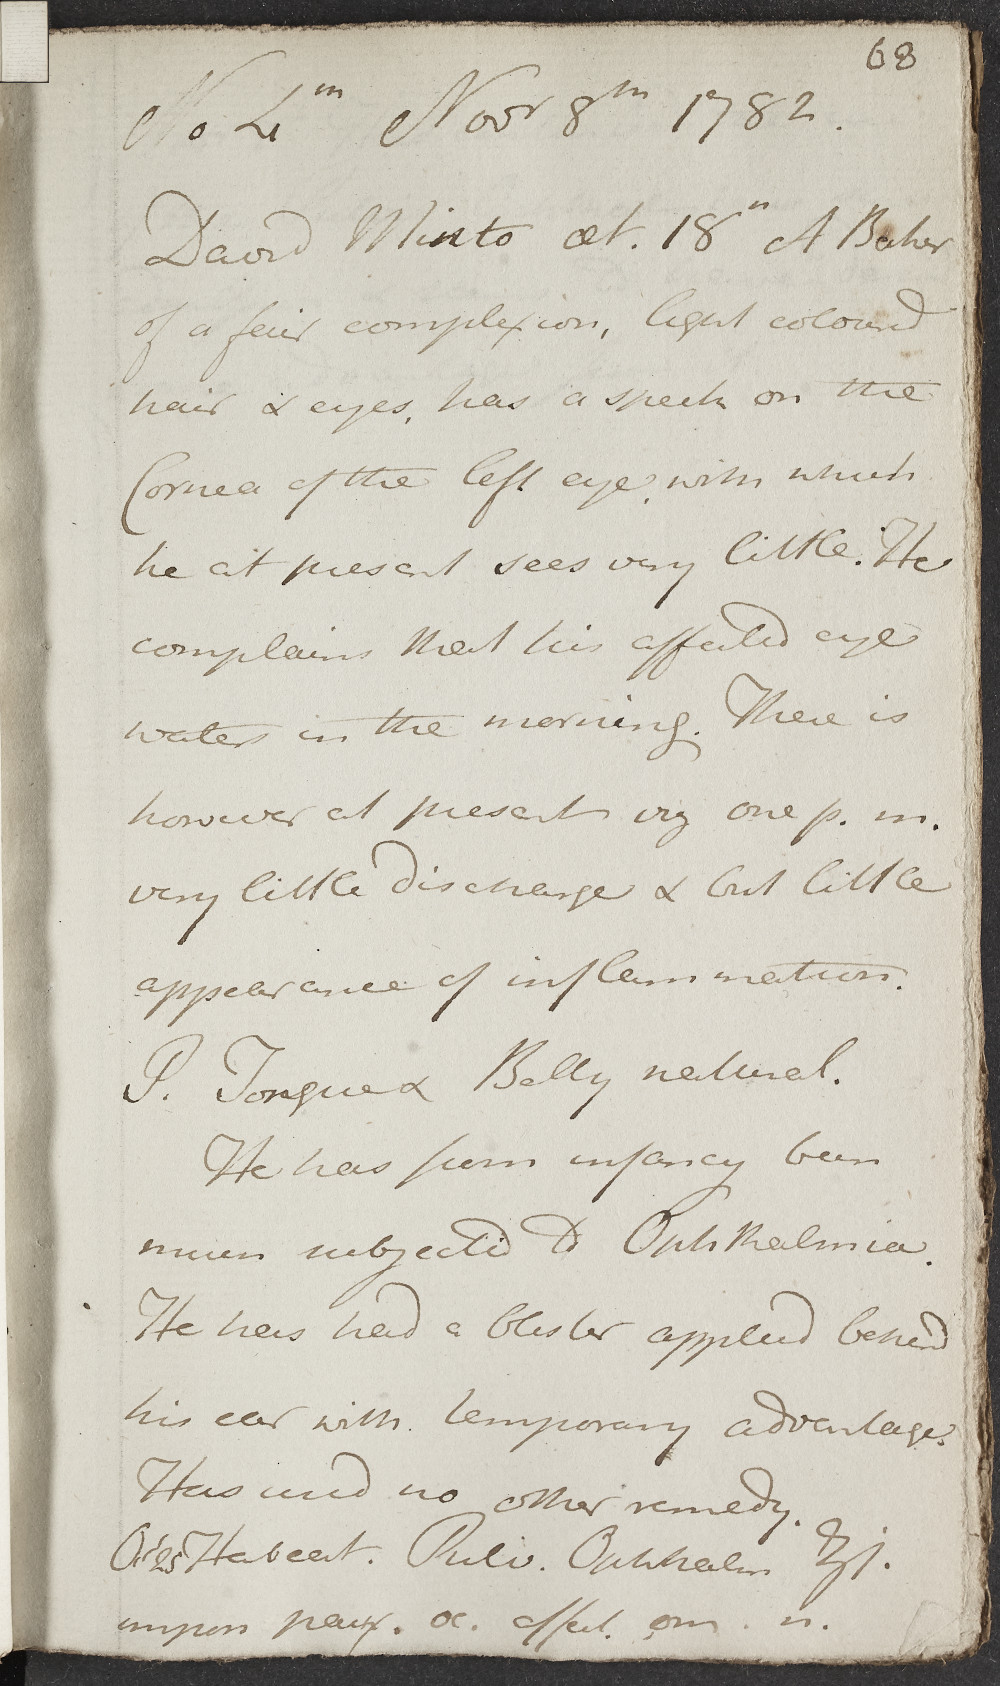 68
No 4th Novr 8th 1782.
David Minto æt. 18 A Baker
of a fair complexion, light coloured
hair & eyes, has a speck on the
Cornea of the left eye, with which
he at present sees very little. He
complains that his affected eye
waters in the morning. There is
however at present viz one p. m.
very little discharge & but little
appearance of inflammation.
P. Tongue & Belly natural.
He has from infancy been
much subjected to Ophthalmia.
He has had a blister applied behind
his ear with temporary advantage.
Has used no other remedy.
Habeat. Pulv. Ophthalm ʒj.
impon paux. oc. affect. om. n.